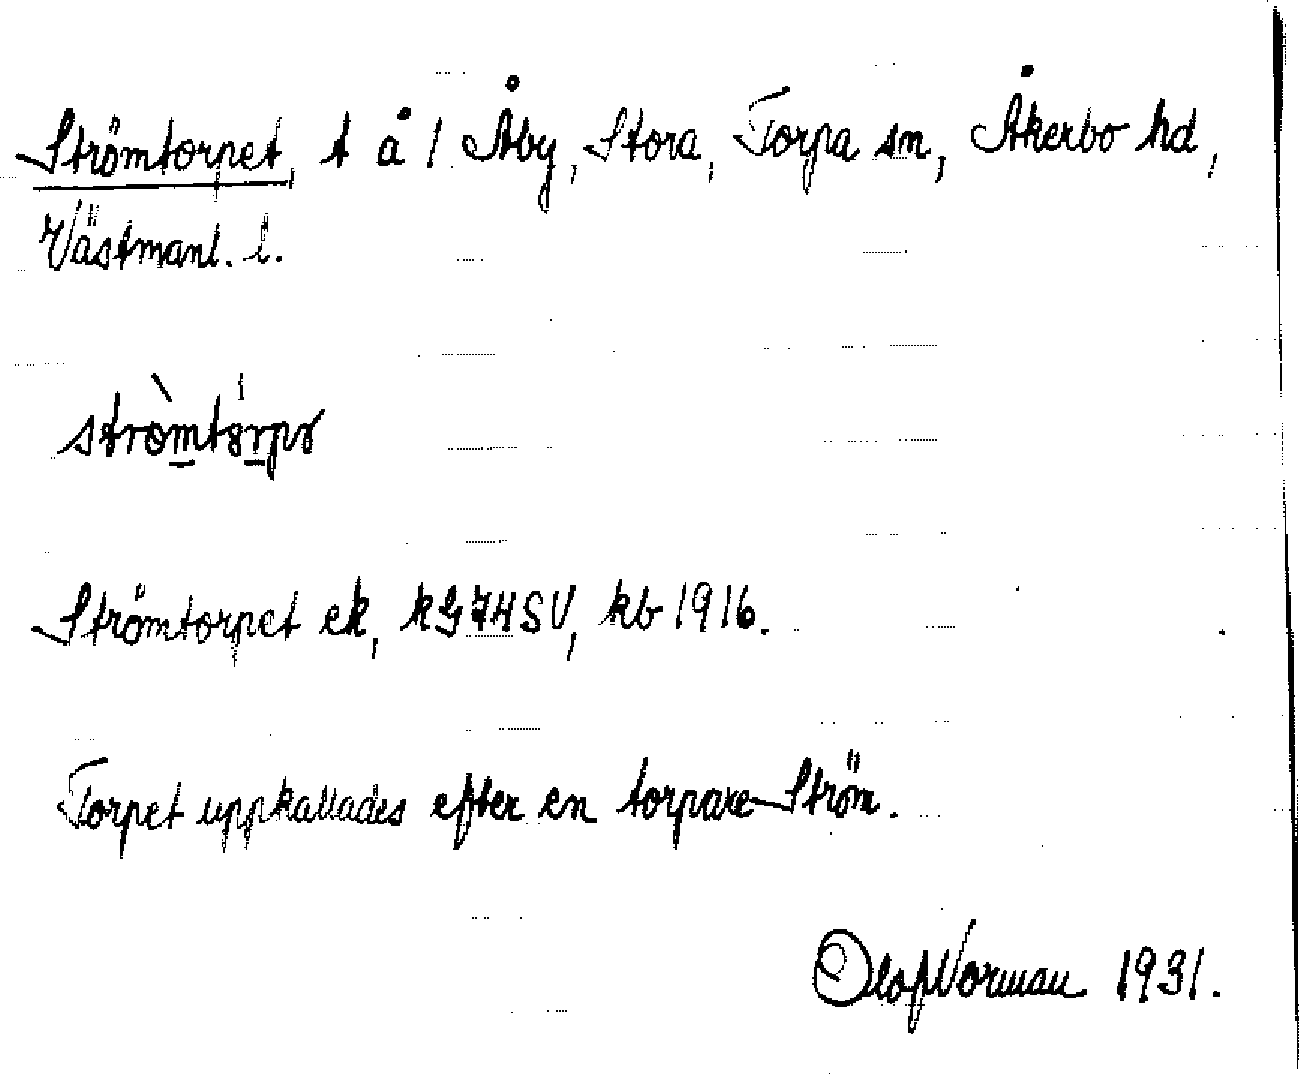 Strömtorpet, t å 1 Åby, Stora, Torpa sn, Åkerbo hd,
Västmanl. l.
strömtorpə
Strömtorpet ek, kG 74 SV, kb 1916.
Torpet uppkallades efter en torpare Ström.
Olof Norman 1931.